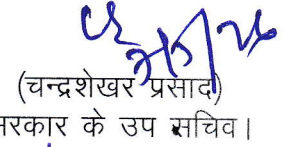 (चन्द्रशेखर प्रसाद)
सरकार के उप सचिव।